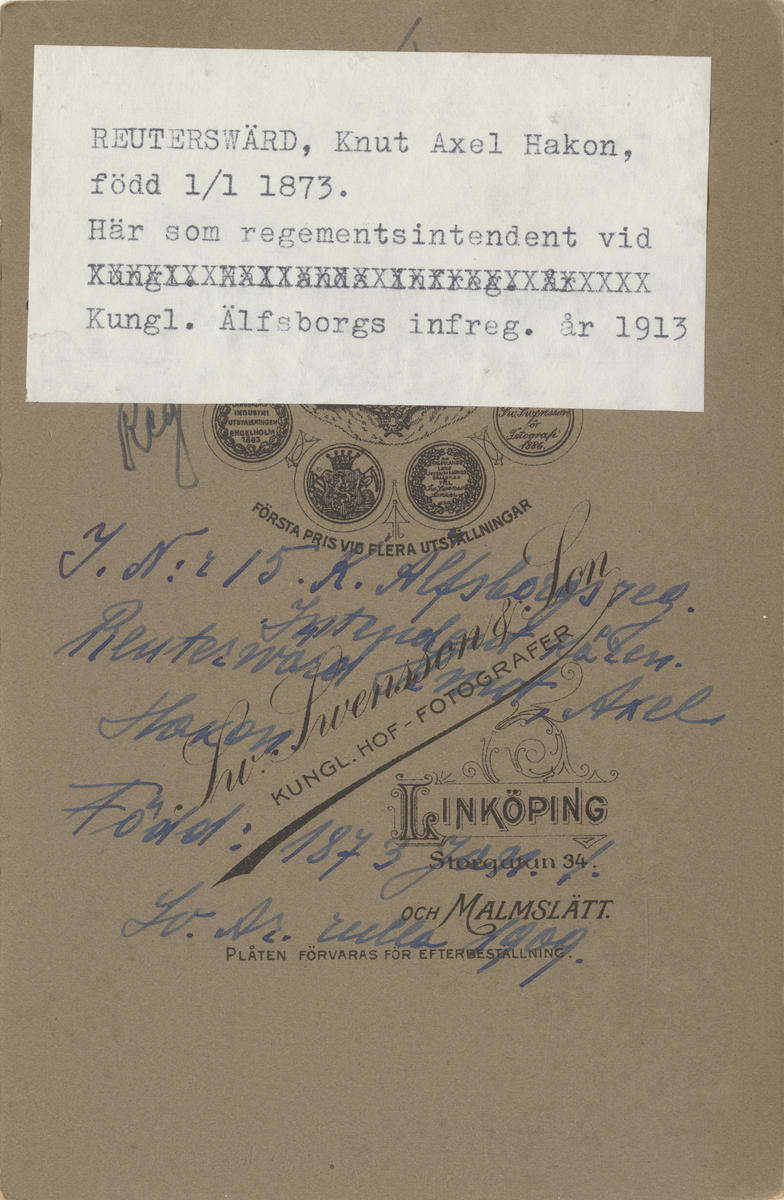 REUTERSWÄRD, Knut Axel Hakon,
född 1/1 1873.
Här som regementsintendent vid
Kungl. Hallands infreg. år
Kungl. Älfsborgs infreg. år 1913
Reg
INDUSTRI
UTSTÄLLNINGEN
ENGELHOLM
1883
Sw. Swensson
för
Fotografi
1886.
FÖRSTA PRIS VID FLERA UTSTÄLLNINGAR
I. N:r 15. K. Älfsborgs reg.
Intendent kåren.
Reuterswärd Knut, Axel
Hakon
Sw. Swensson & Son
KUNGL. HOF-FOTOGRAFER
LINKÖPING
Född: 1873 Jan. 1.
Storgatan 34.
OCH MALMSLÄTT.
Sv. Ar. rulla 1909.
PLÅTEN FÖRVARAS FÖR EFTERBESTÄLLNING.